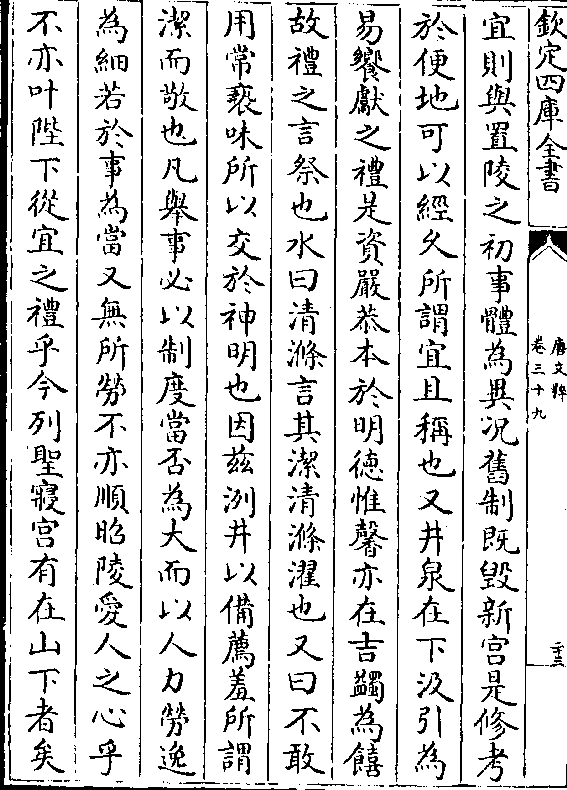 欽定四庫全書
唐文粹
卷三十九
二十三
宜則與置陵之初事體為異况舊制既毀新宫是修考
於便地可以經久所謂宜且稱也又井泉在下汲引為
易饗獻之禮是資嚴恭本於明德惟馨亦在吉蠲為饎
故禮之言祭也水曰清滌言其潔清滌濯也又曰不敢
用常䙝味所以交於神明也因兹洌井以備薦羞所謂
潔而敬也凡舉事必以制度當否為大而以人力勞逸
為細若於事為當又無所勞不亦順昭陵愛人之心乎
不亦叶陛下從宜之禮乎今列聖寢宫有在山下者矣